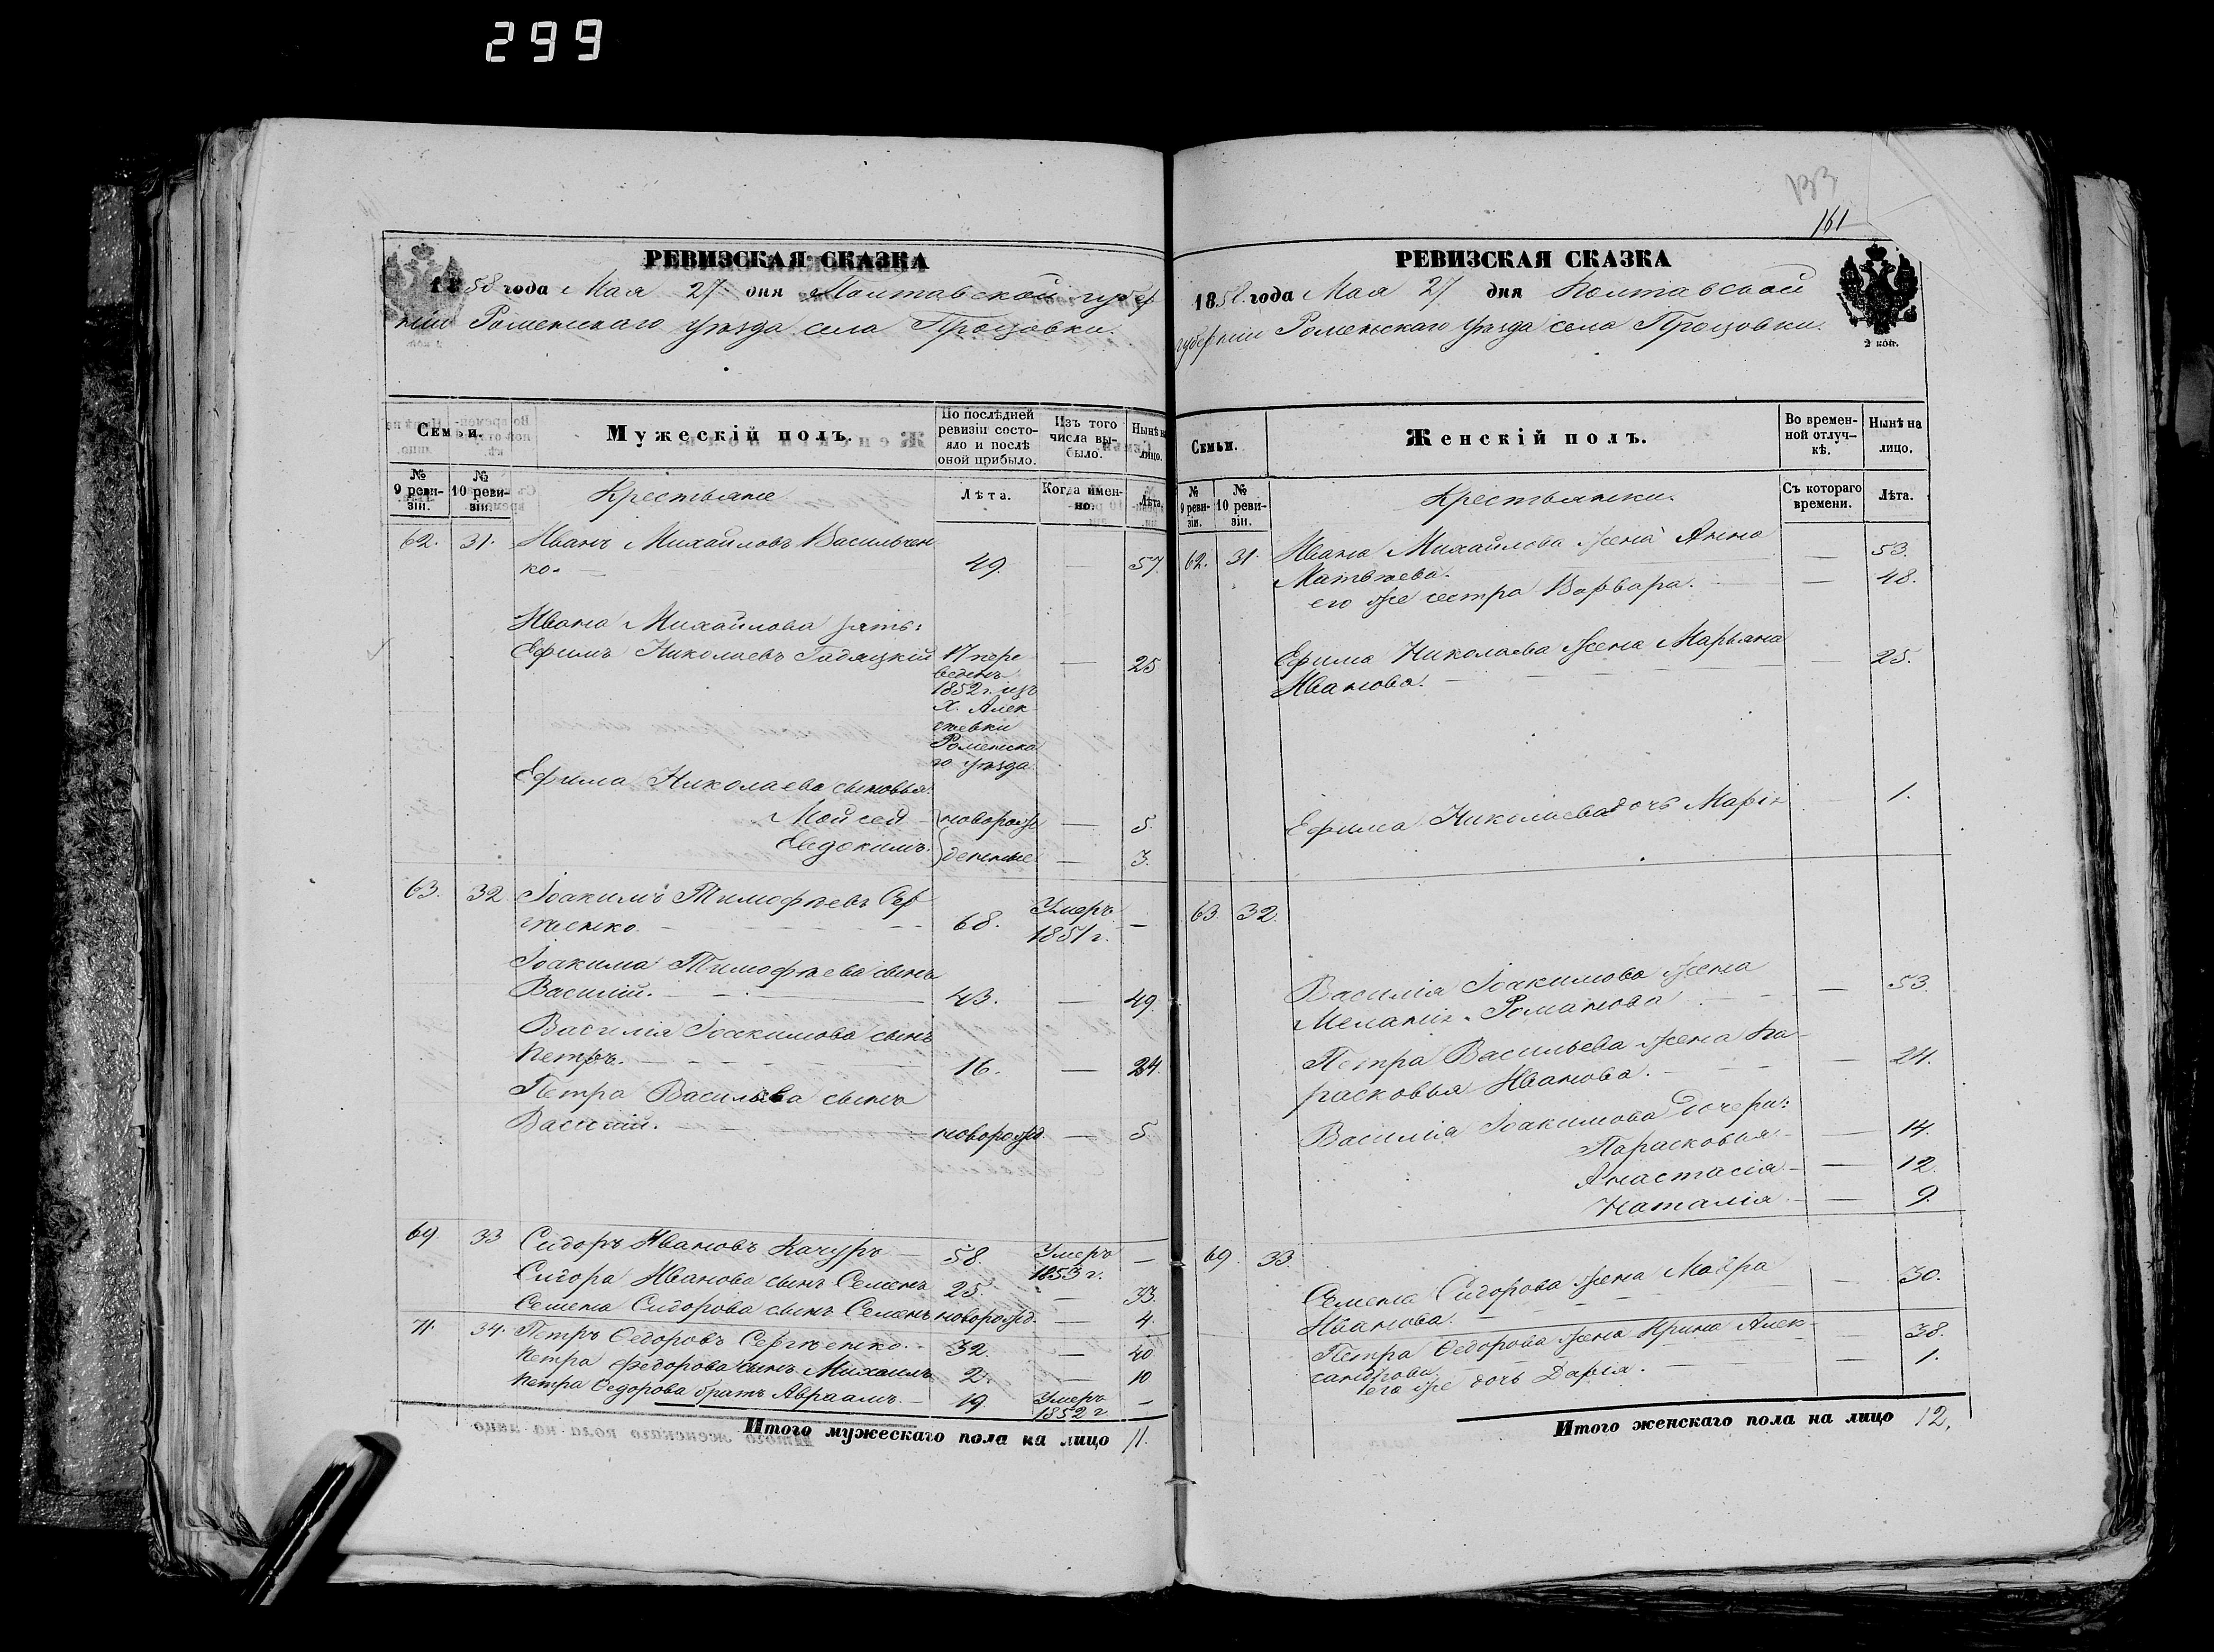 299
РЕВИЗСКАЯ СКАЗКА
1858 года Мая 27 дня Полтавской губер
ніи Роменскаго уѣзда села Процовки.
Семьи.
Мужескій полъ.
По послѣдней ревизіи состо-яло и послѣ оной прибыло.
Изъ того числа вы-было.
Нынѣ на лицо.
№ 9 реви-зіи.
№ 10 реви-зіи.
Крестьяне
Лѣта.
Когда имен-но.
Лѣта.
62. 31. Иванъ Михайловъ Васильчен
ко. 49. — 57.
Ивана Михайлова зять:
Ефимъ Николаевъ Гадяцкій 17 пере — 25
веденъ
1852 г. изъ
х. Алек
сѣевки
Роменска
го уѣзда.
Ефима Николаева сыновья:
Мойсей новорож — 5.
Евдокимъ. денные. — 3.
63. 32. Іоакимъ Тимофѣевъ Сер
гѣенко. 68. Умеръ 1851 г. —
Іоакима Тимофѣева сынъ
Василій. 43. — 49.
Василія Іоакимова сынъ
Петръ. 16. — 24.
Петра Васильева сынъ
Василій. новорожд. — 5.
69. 33 Сидоръ Ивановъ Качуръ 58. Умеръ 1853 г. —
Сидора Иванова сынъ Семенъ 25. — 33.
Семена Сидорова сынъ Семенъ новорожд. — 4.
71. 34. Петръ Ѳедоровъ Сергѣенко. 32. — 40
Петра Федорова сынъ Михаилъ 2. — 10
Петра Ѳедорова братъ Авраамъ. 19 Умеръ 1852 г —
Итого мужескаго пола на лицо 11.
133
161
РЕВИЗСКАЯ СКАЗКА
1858. года Мая 27 дня Полтавской
губерніи Роменскаго уѣзда села Процовки.
2 коп.
Семьи.
Женскій полъ.
Во времен-ной отлуч-кѣ.
Нынѣ на лицо.
№ 9 реви-зіи.
№ 10 реви-зіи.
Крестьянки.
Съ котораго времени.
Лѣта.
62. 31. Ивана Михайлова жена Анна — 53.
Матвѣева.
его же сестра Варвара. — 48.
Ефима Николаева жена Марьяна — 25.
Иванова.
Ефима Николаева дочь Марія — 1.
63. 32.
Василія Іоакимова жена — 53.
Меланія Романова
Петра Васильева жена Па- — 24.
расковья Иванова.
Василія Іоакимова дочери:
Парасковья — 14.
Анастасія — 12.
Наталія — 9.
69. 33.
Семена Сидорова жена Мавра — 30.
Иванова.
Петра Ѳедорова жена Ирина Алек- — 38.
сандрова.
его же дочь Дарія. — 1.
Итого женскаго пола на лицо 12.